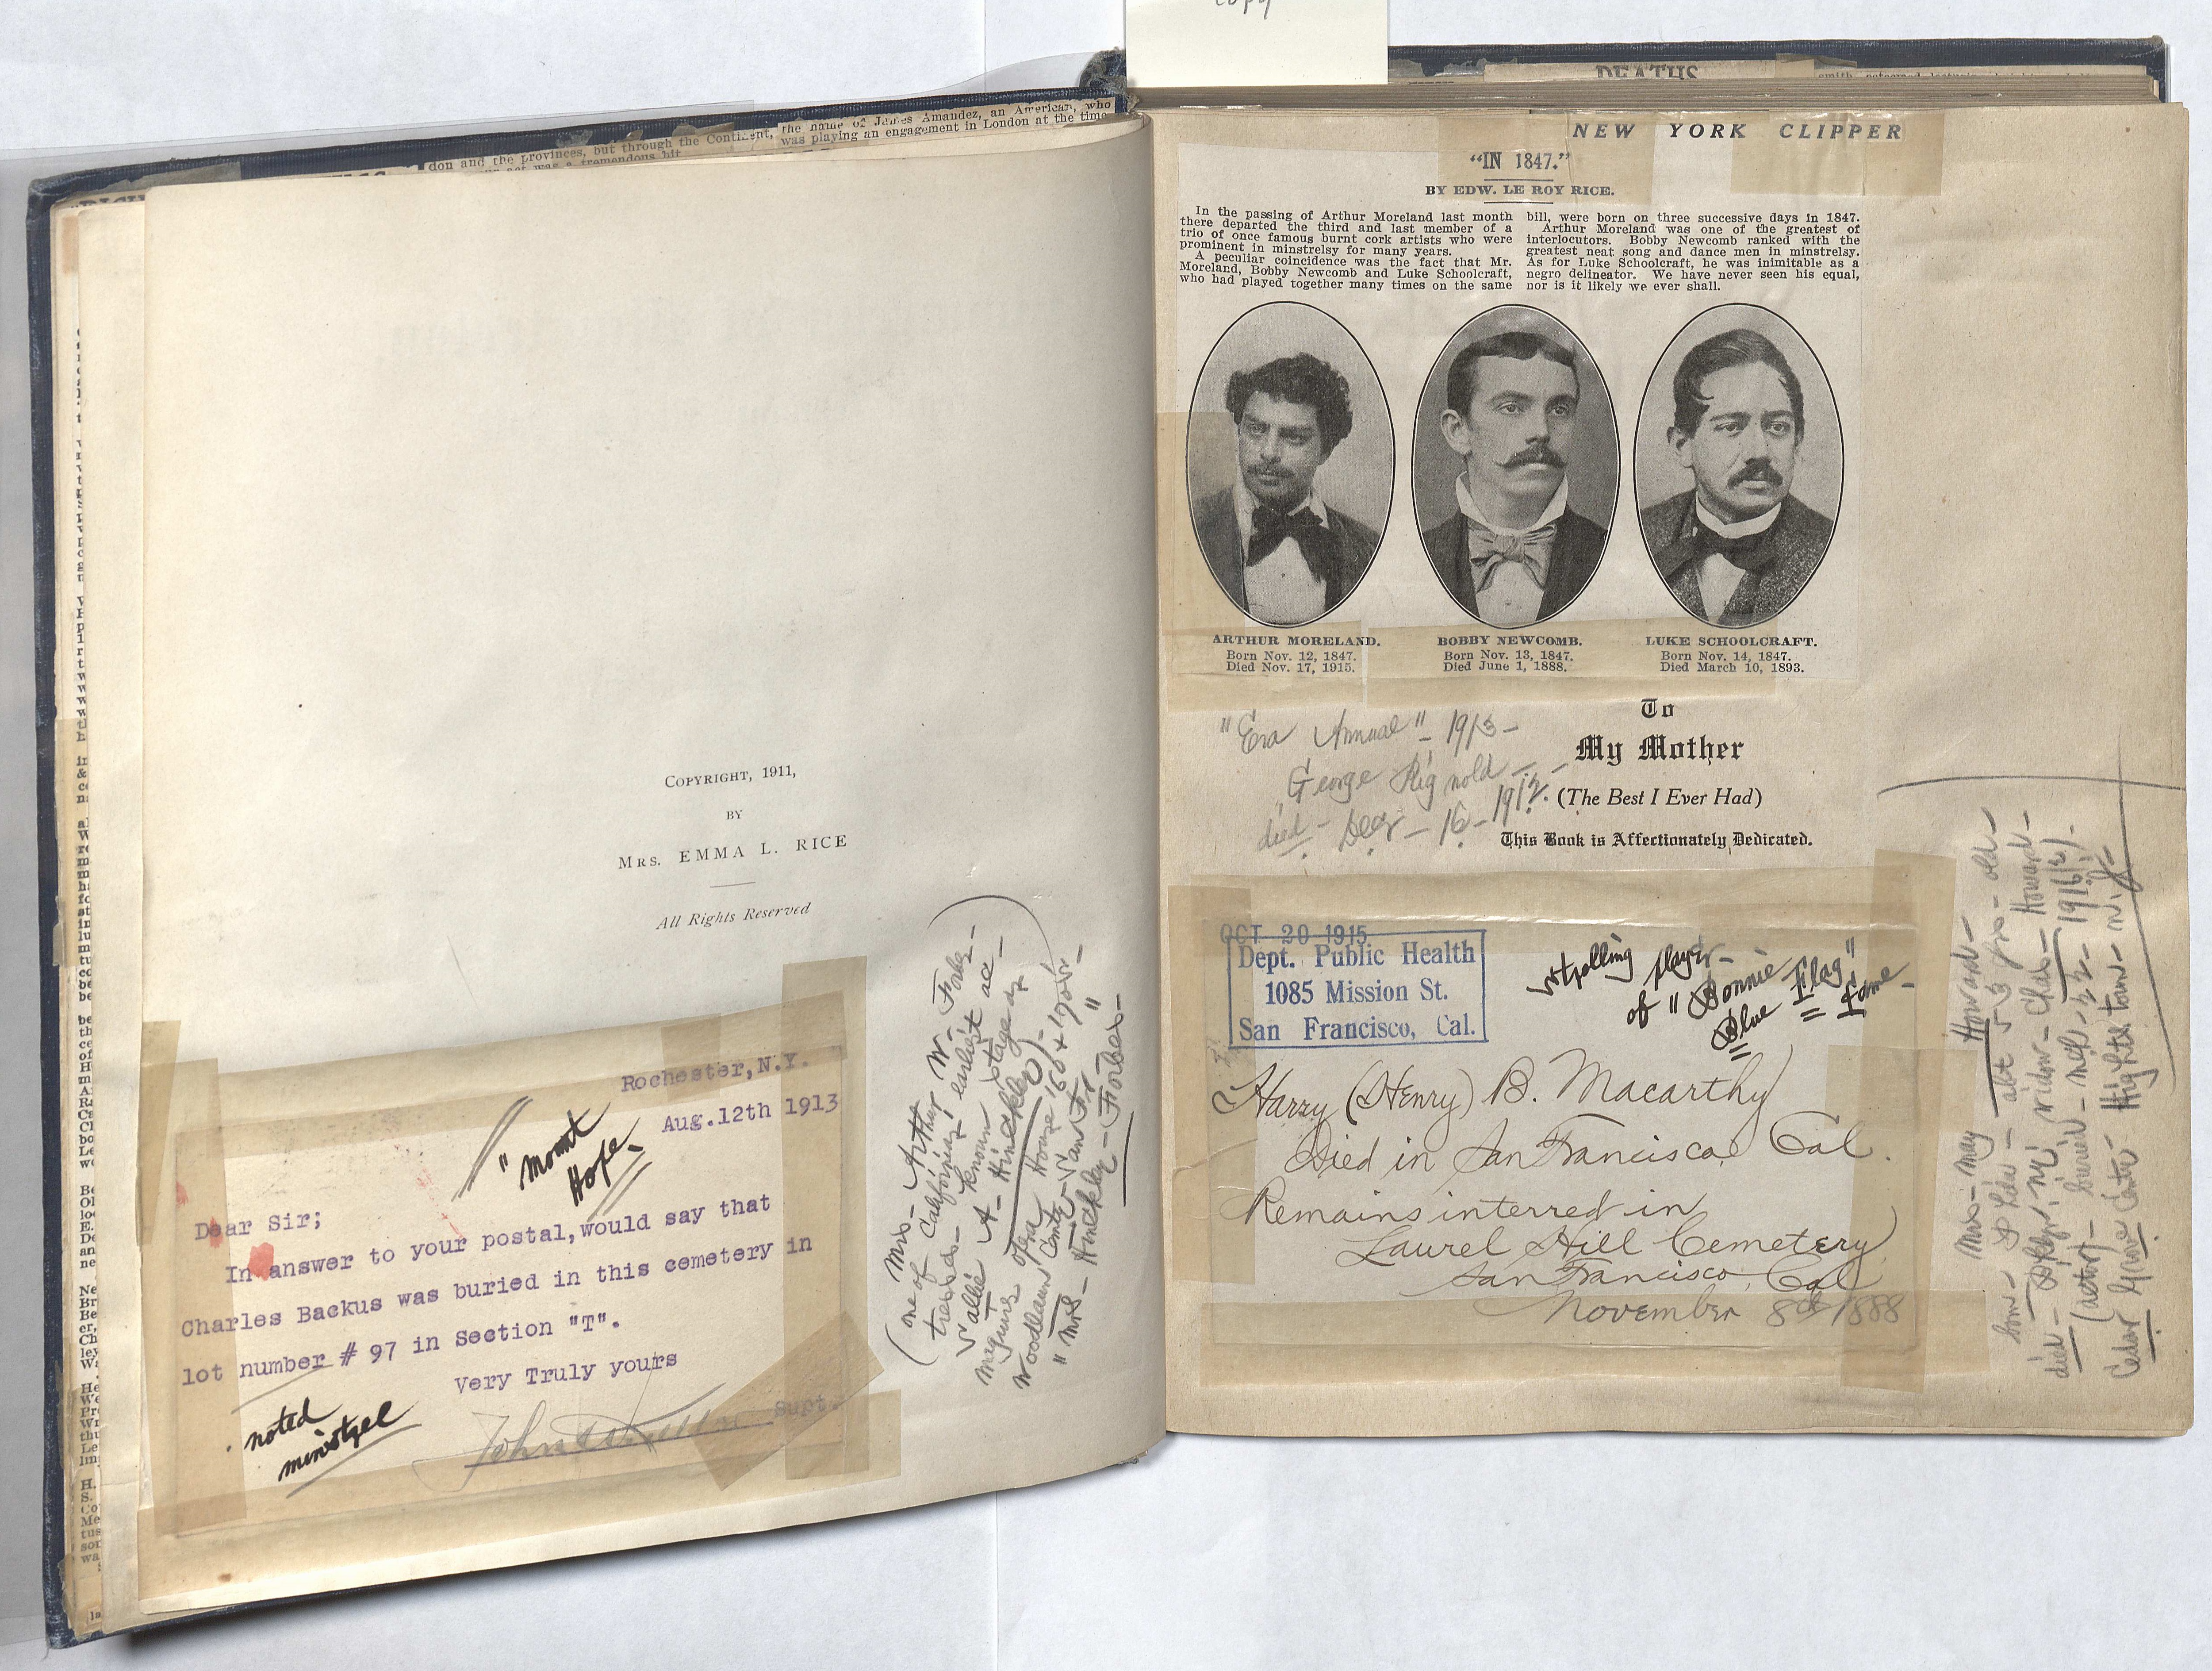 copy
the name of James Amandez, an American, who
was playing an engagement in London at the time
don and the provinces, but through the Continent,
COPYRIGHT, 1911,
BY
MRS. EMMA L. RICE
All Rights Reserved
Rochester,N.Y.
Aug.12th 1913
"Mount
Hope
Dear Sir;
In answer to your postal,would say that
Charles Backus was buried in this cemetery in
lot number # 97 in Section "T".
Very Truly yours
Supt.
noted
minstrel
(one of Mrs- Arthur W. Forbes-
California's earliest ac-
tresses- known stage as
Sallie A- Hinckley)-
Maguires Opera House
Woodlawn Cemty- San F-
"Mrs- Hinckley- Forbes-"
DEATHS
NEW YORK CLIPPER
"IN 1847."
BY EDW. LE ROY RICE.
In the passing of Arthur Moreland last month
there departed the third and last member of a
trio of once famous burnt cork artists who were
prominent in minstrelsy for many years.
A peculiar coincidence was the fact that Mr.
Moreland, Bobby Newcomb and Luke Schoolcraft,
who had played together many times on the same
bill, were born on three successive days in 1847.
Arthur Moreland was one of the greatest of
interlocutors. Bobby Newcomb ranked with the
greatest neat song and dance men in minstrelsy.
As for Luke Schoolcraft, he was inimitable as a
negro delineator. We have never seen his equal,
nor is it likely we ever shall.
ARTHUR MORELAND.
Born Nov. 12, 1847.
Died Nov. 17, 1915.
BOBBY NEWCOMB.
Born Nov. 13, 1847.
Died June 1, 1888.
LUKE SCHOOLCRAFT.
Born Nov. 14, 1847.
Died March 10, 1893.
"Era Annual" - 1913-
George Rignold -
died - Decr - 16 - 1912.
To
My Mother
(The Best I Ever Had)
This Book is Affectionately Dedicated.
OCT 20 1915
Dept. Public Health
1085 Mission St.
San Francisco, Cal.
strolling player-
of "Bonnie
Blue Flag"
Fame-
Harry (Henry) B. Macarthy
Died in San Francisco, Cal.
Remains interred in
Laurel Hill Cemetery
San Francisco, Cal
November 8th 1888
Mrs- May Howard-
born- Phila- abt 53 yrs- old-
died- Bklyn, NY, widow- Chas- Howard-
(actor)- buried- 22- 1916
Cedar Grove Cemty- Hightstown- NJ-